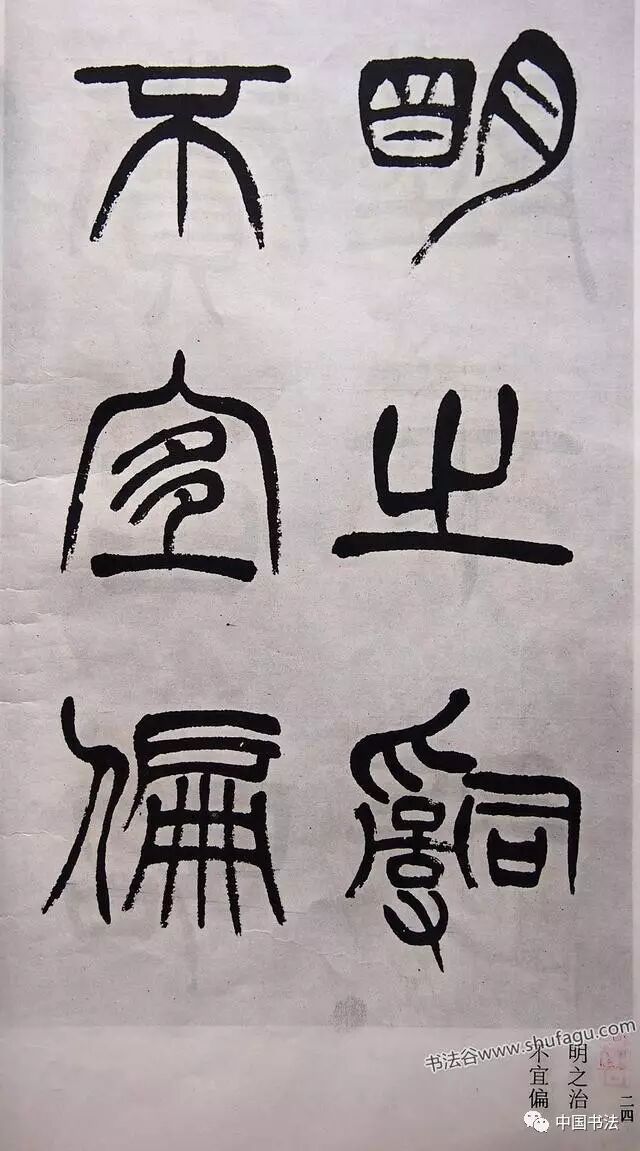 明之治
不宜偏
明之治
不宜偏
二四
书法谷www.shufagu.com
中国书法